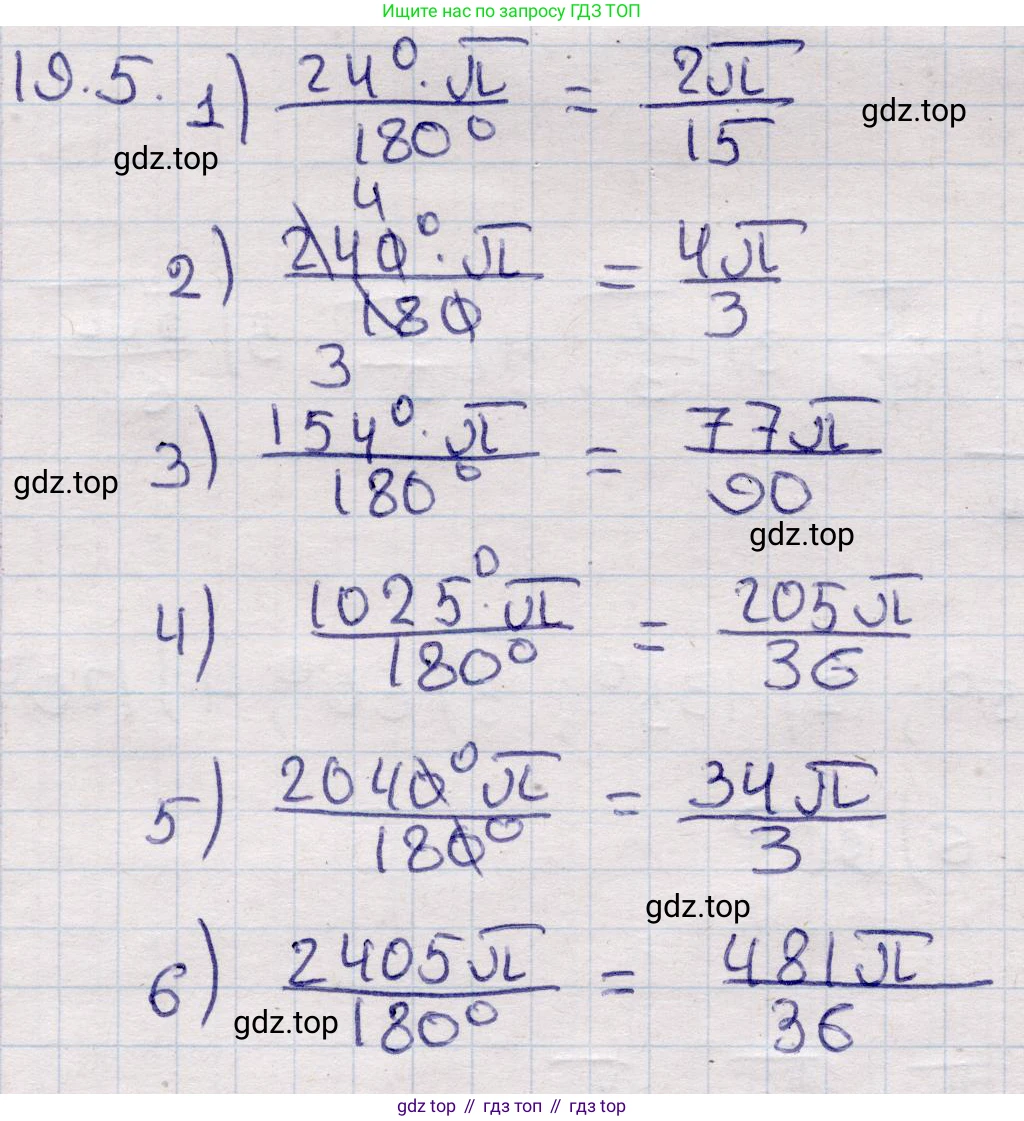 Ищите нас по запросу ГДЗ ТОП
19.5. 1) 24°·π / 180° = 2π / 15
gdz.top
gdz.top
4
2) 240°·π / 180 = 4π / 3
3
3) 154°·π / 180° = 77π / 90
gdz.top
gdz.top
4) 1025°·π / 180° = 205π / 36
5) 2040°π / 180° = 34π / 3
gdz.top
6) 2405π / 180° = 481π / 36
gdz.top
gdz top // гдз топ // gdz top